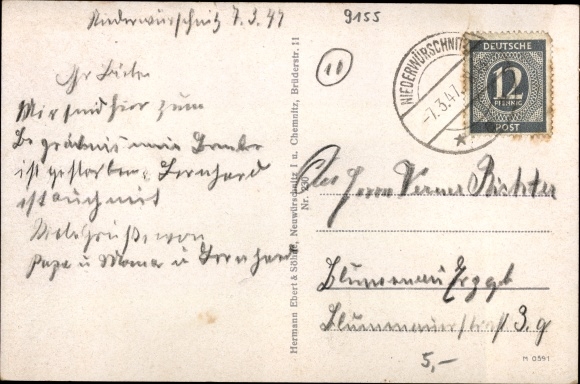 Niederwürschnitz 7.3.47
9155
10
NIEDERWÜRSCHNITZ
-7.3.47.
DEUTSCHE
12
PFENNIG
POST
Ihr Lieben
Wir sind hier zum
Begräbnis mein Tante
ist gestorben Bernhard
ist auch mit
Viele Grüße von
Papa u Mama u Bernhard
Hermann Ebert & Söhne, Neuwürschnitz I u. Chemnitz, Brüderstr. 11
Nr.
Herrn Werner Richter
Blumenau Erzgb
Blumenauerstraß 3.g
5,-
M 0591